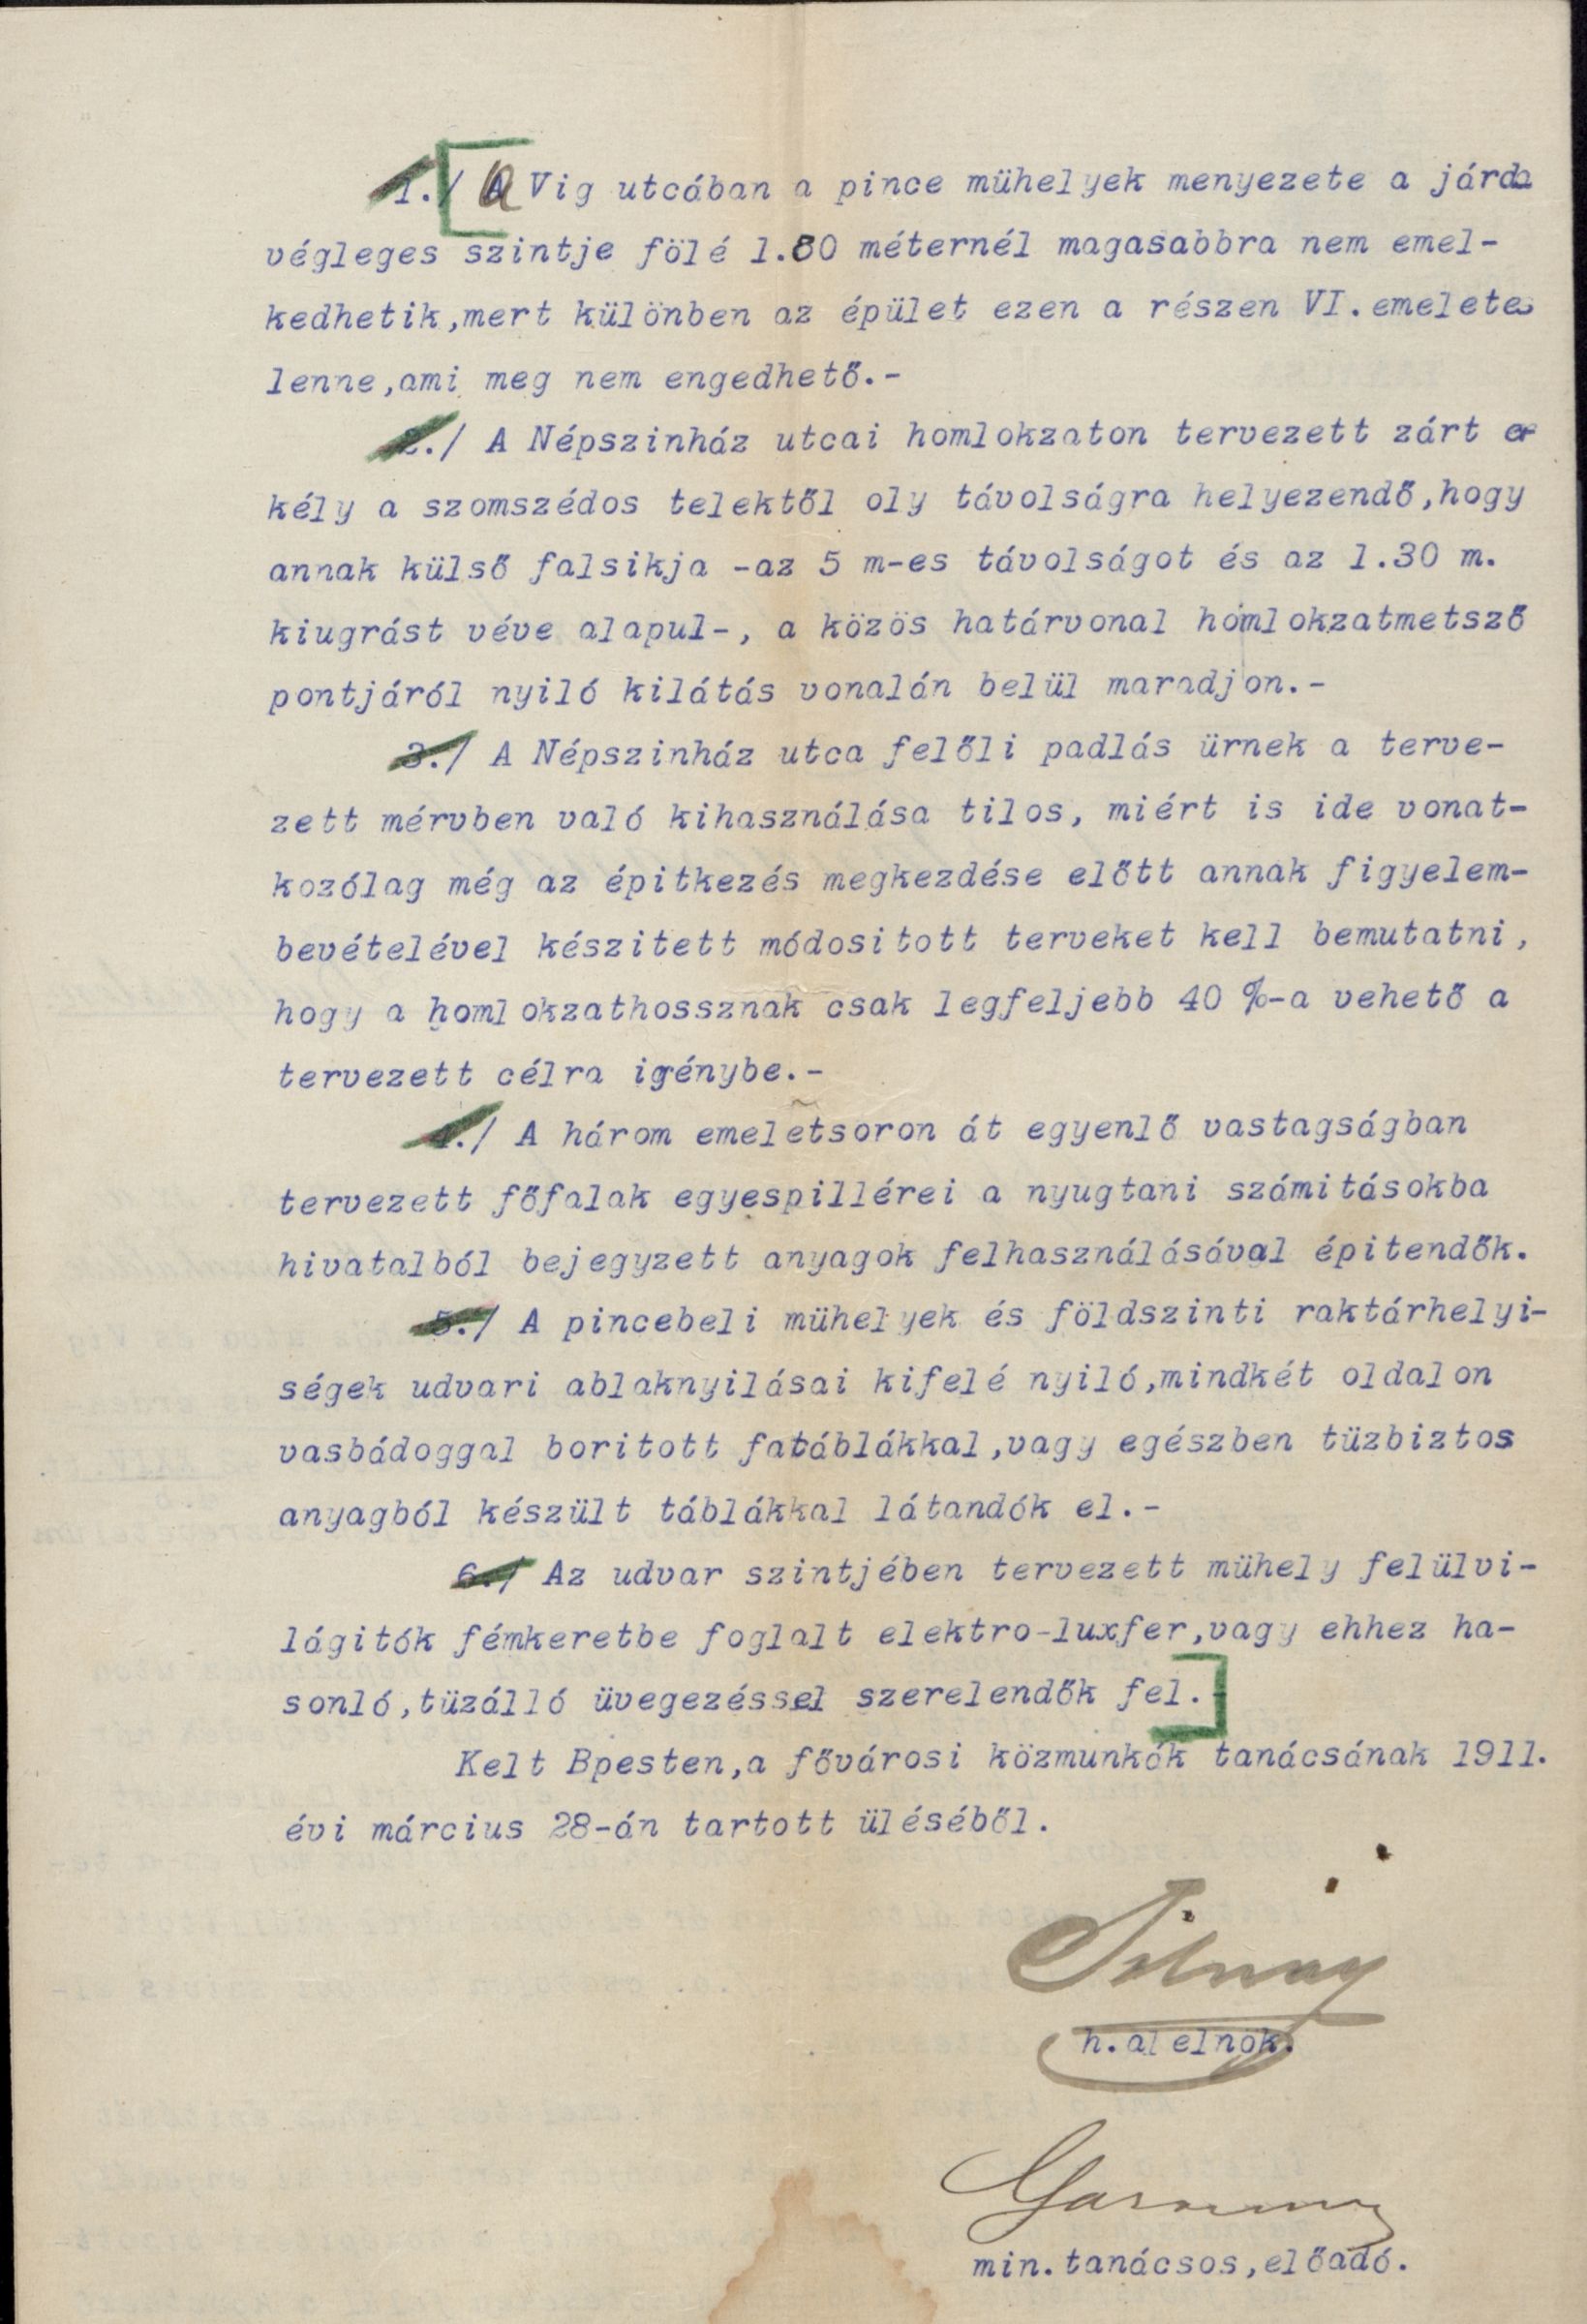 1./ a Vig utcában a pince mühelyek menyezete a járda
végleges szintje fölé 1.80 méternél magasabbra nem emel-
kedhetik,mert különben az épület ezen a részen VI.emeletes
lenne,ami meg nem engedhető.-
2./ A Népszinház utcai homlokzaton tervezett zárt er
kély a szomszédos telektől oly távolságra helyezendő,hogy
annak külső falsikja -az 5 m-es távolságot és az 1.30 m.
kiugrást véve alapul-, a közös határvonal homlokzatmetsző
pontjáról nyiló kilátás vonalán belül maradjon.-
3./ A Népszinház utca felőli padlás ürnek a terve-
zett mérvben való kihasználása tilos, miért is ide vonat-
kozólag még az épitkezés megkezdése előtt annak figyelem-
bevételével készitett módositott terveket kell bemutatni,
hogy a homlokzathossznak csak legfeljebb 40 %-a vehető a
tervezett célra igénybe.-
4./ A három emeletsoron át egyenlő vastagságban
tervezett főfalak egyespillérei a nyugtani számitásokba
hivatalból bejegyzett anyagok felhasználásával épitendők.
5./ A pincebeli mühelyek és földszinti raktárhelyi-
ségek udvari ablaknyilásai kifelé nyiló,mindkét oldalon
vasbádoggal boritott fatáblákkal,vagy egészben tüzbiztos
anyagból készült táblákkal látandók el.-
6./ Az udvar szintjében tervezett mühely felülvi-
lágitók fémkeretbe foglalt elektro-luxfer,vagy ehhez ha-
sonló,tüzálló üvegezéssel szerelendők fel.-
Kelt Bpesten,a fővárosi közmunkák tanácsának 1911.
évi március 28-án tartott üléséből.
h.alelnök.
min.tanácsos,előadó.